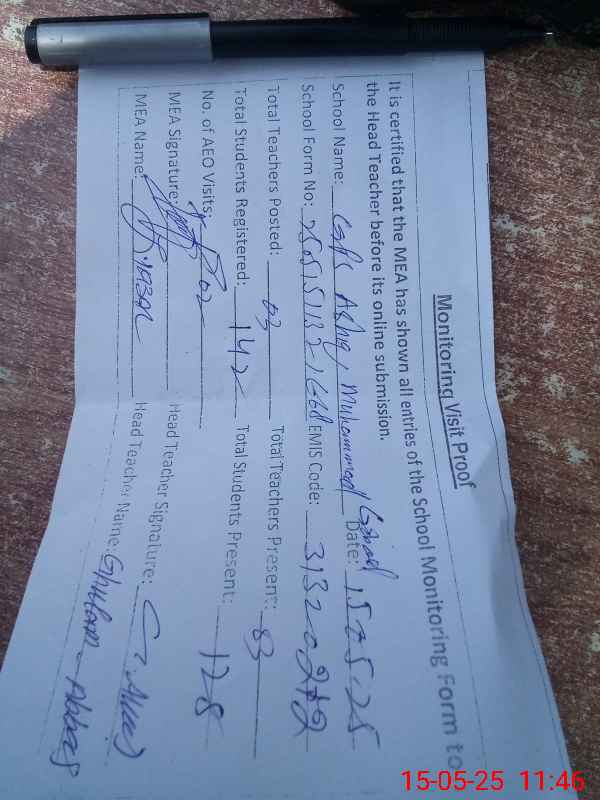 Monitoring Visit Proof
It is certified that the MEA has shown all entries of the School Monitoring Form to
the Head Teacher before its online submission.
School Name: GPS Muhammad Date: 15.05.25
School Form No: EMIS Code:
Total Teachers Posted: 03 Total Teachers Present: 03
Total Students Registered: 142 Total Students Present: 128
No. of AEO Visits: 02
MEA Signature: Head Teacher Signature: G. Abbas
MEA Name: Head Teacher Name: Ghulam Abbas
15-05-25 11:46